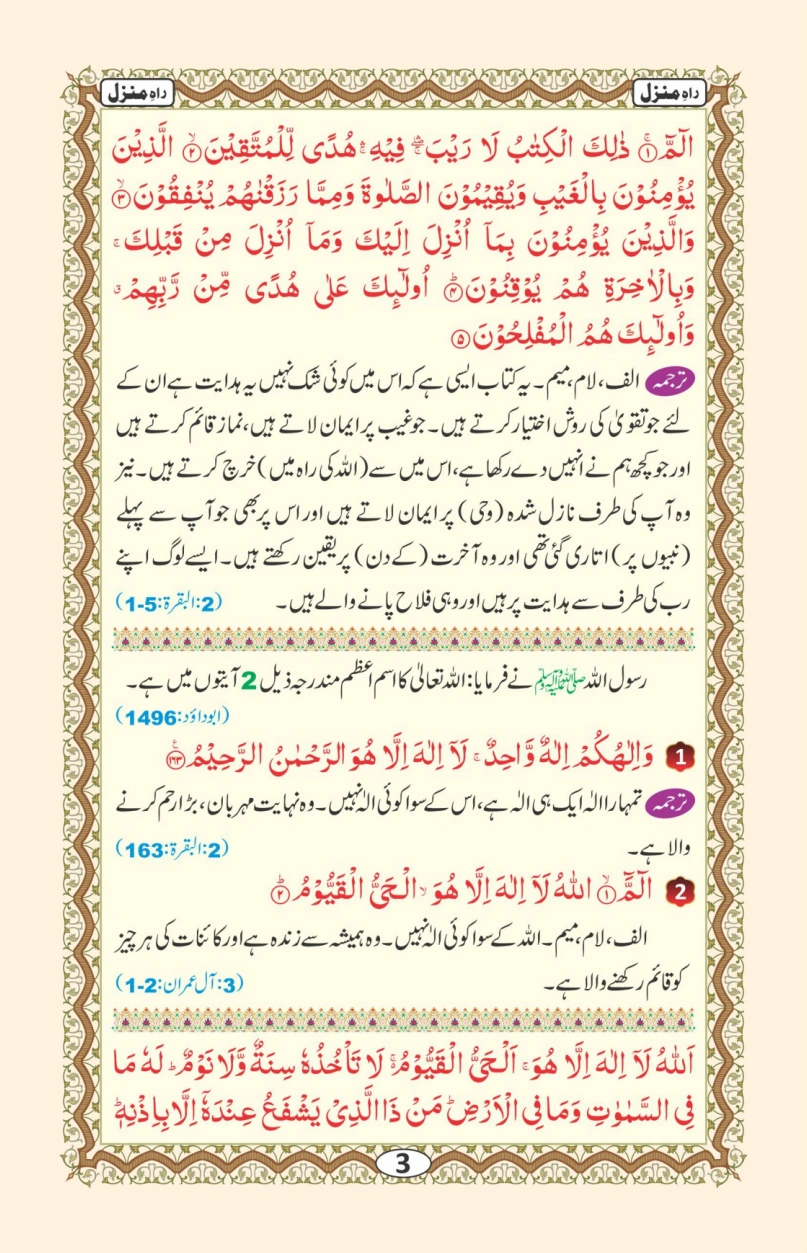 راہِ منزل
راہِ منزل
الٓمّٓ ۚ﴿۱﴾ ذٰلِكَ الْكِتٰبُ لَا رَيْبَ ۛۖ فِيْهِ ۛۚ هُدًى لِّلْمُتَّقِيْنَ ۙ﴿۲﴾ الَّذِيْنَ
يُؤْمِنُوْنَ بِالْغَيْبِ وَيُقِيْمُوْنَ الصَّلٰوةَ وَمِمَّا رَزَقْنٰهُمْ يُنْفِقُوْنَ ۙ﴿۳﴾
وَالَّذِيْنَ يُؤْمِنُوْنَ بِمَآ اُنْزِلَ اِلَيْكَ وَمَآ اُنْزِلَ مِنْ قَبْلِكَ ۚ
وَبِالْاٰخِرَةِ هُمْ يُوْقِنُوْنَ ؕ﴿۴﴾ اُولٰٓئِكَ عَلٰى هُدًى مِّنْ رَّبِّهِمْ ۗ
وَاُولٰٓئِكَ هُمُ الْمُفْلِحُوْنَ ﴿۵﴾
ترجمہ الف، لام، میم۔ یہ کتاب ایسی ہے کہ اس میں کوئی شک نہیں یہ ہدایت ہے ان کے
لئے جو تقویٰ کی روش اختیار کرتے ہیں۔ جو غیب پر ایمان لاتے ہیں، نماز قائم کرتے ہیں
اور جو کچھ ہم نے انہیں دے رکھا ہے، اس میں سے (اللہ کی راہ میں) خرچ کرتے ہیں۔ نیز
وہ آپ کی طرف نازل شدہ (وحی) پر ایمان لاتے ہیں اور اس پر بھی جو آپ سے پہلے
(نبیوں پر) اتاری گئی تھی اور وہ آخرت (کے دن) پر یقین رکھتے ہیں۔ ایسے لوگ اپنے
رب کی طرف سے ہدایت پر ہیں اور وہی فلاح پانے والے ہیں۔ (2:البقرۃ:5-1)
رسول اللہ ﷺ نے فرمایا: اللہ تعالیٰ کا اسم اعظم مندرجہ ذیل 2 آیتوں میں ہے۔
(ابوداؤد:1496)
1 وَاِلٰهُكُمْ اِلٰهٌ وَّاحِدٌ ۚ لَآ اِلٰهَ اِلَّا هُوَ الرَّحْمٰنُ الرَّحِيْمُ ﴿۱۶۳﴾
ترجمہ تمہارا الٰہ ایک ہی الٰہ ہے، اس کے سوا کوئی الٰہ نہیں۔ وہ نہایت مہربان، بڑا رحم کرنے
والا ہے۔ (2:البقرۃ:163)
2 الٓمّٓ ۙ﴿۱﴾ اللهُ لَآ اِلٰهَ اِلَّا هُوَ ۙ الْحَيُّ الْقَيُّوْمُ ؕ﴿۲﴾
الف، لام، میم۔ اللہ کے سوا کوئی الٰہ نہیں۔ وہ ہمیشہ سے زندہ ہے اور کائنات کی ہر چیز
کو قائم رکھنے والا ہے۔ (3:آل عمران:2-1)
اَللهُ لَآ اِلٰهَ اِلَّا هُوَ ۚ اَلْحَيُّ الْقَيُّوْمُ ۚ۬ لَا تَاْخُذُهٗ سِنَةٌ وَّلَا نَوْمٌ ؕ لَهٗ مَا
فِى السَّمٰوٰتِ وَمَا فِى الْاَرْضِ ؕ مَنْ ذَا الَّذِىْ يَشْفَعُ عِنْدَهٗٓ اِلَّا بِاِذْنِهٖ ؕ
3